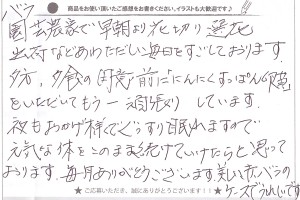 商品をお使い頂いたご感想をお書きください。イラストも大歓迎です♪
バラ
園芸農家で早朝より花切り選花
出荷などあわただしい毎日をすごしております。
夕方、夕食の時間前ににんにくすっぽん
をいただいてもう一頑張りしています。
夜もおかげ様でぐっすり眠れますので
元気な体をこのまま続けていけたらと思って
おります。毎月ありがとうございます。美しい赤いバラの
ケースでうれしいです
★ご応募いただき、誠にありがとうございます!!★